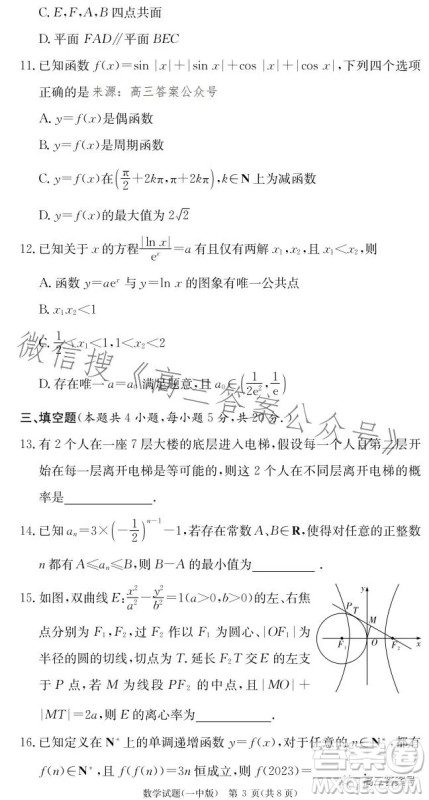 C. E,F,A,B 四点共面
D. 平面 FAD∥平面 BEC
11. 已知函数 f(x)=sin |x|+|sin x|+cos |x|+|cos x|,下列四个选项
正确的是 来源:高三答案公众号
A. y=f(x)是偶函数
B. y=f(x)是周期函数
C. y=f(x)在(π/2+2kπ,π+2kπ),k∈N 上为减函数
D. y=f(x)的最大值为 2√2
12. 已知关于 x 的方程|ln x|/eˣ=a 有且仅有两解 x₁,x₂,且 x₁<x₂,则
A. 函数 y=aeˣ 与 y=ln x 的图象有唯一公共点
B. x₁x₂<1
C. 1/2<x₁<1,1<x₂<2
D. 存在唯一 a=a₀满足题意,且 a₀∈(1/2e²,1/e)
微信搜《高三答案公众号》
三、填空题(本题共 4 小题,每小题 5 分,共 20 分.)
13. 有 2 个人在一座 7 层大楼的底层进入电梯,假设每一个人自第二层开
始在每一层离开电梯是等可能的,则这 2 个人在不同层离开电梯的概
率是________.
14. 已知 aₙ=3×(-1/2)ⁿ⁻¹-1,若存在常数 A、B∈R,使得对任意的正整数
n 都有 A≤aₙ≤B,则 B-A 的最小值为________.
15. 如图,双曲线 E:x²/a²-y²/b²=1(a>0,b>0)的左、右焦
点分别为 F₁,F₂,过 F₂ 作以 F₁ 为圆心、|OF₁|为
半径的圆的切线,切点为 T. 延长 F₂T 交 E 的左支
于 P 点,若 M 为线段 PF₂ 的中点,且|MO|+
|MT|=2a,则 E 的离心率为________.
y
P
T
M
F₁
O
F₂
x
16. 已知定义在 N* 上的单调递增函数 y=f(x),对于任意的 n∈N*,都有
f(n)∈N*,且 f(f(n))=3n 恒成立,则 f(2023)=
数学试题(一中版) 第 3 页(共 8 页)